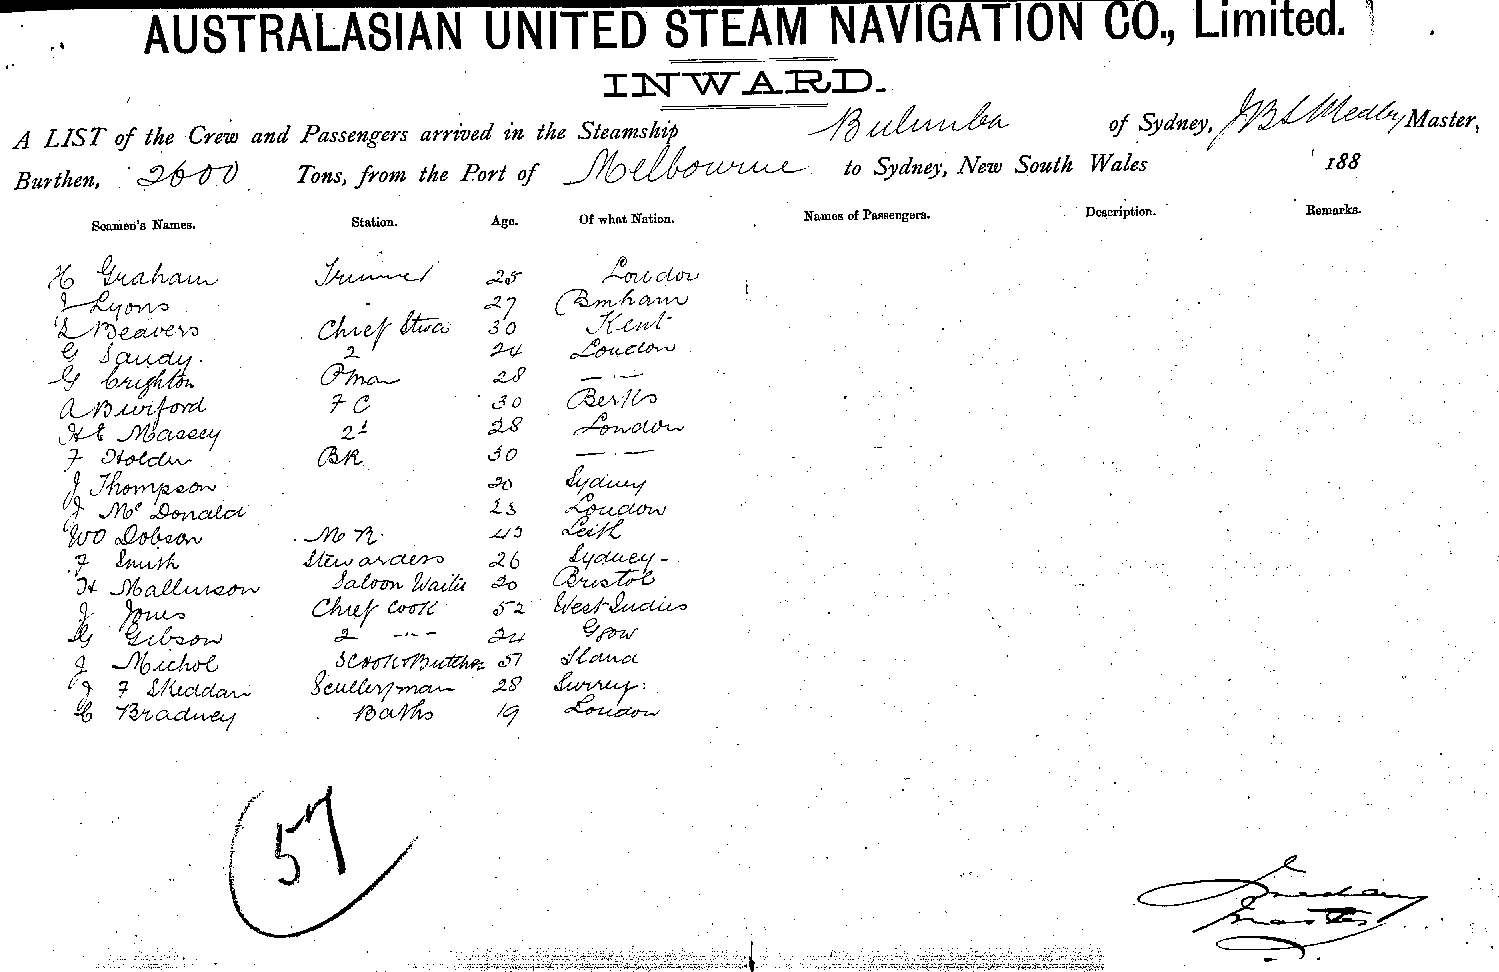 AUSTRALASIAN UNITED STEAM NAVIGATION CO., Limited.
INWARD.
A LIST of the Crew and Passengers arrived in the Steamship Bulimba of Sydney, Master,
Burthen, 2600 Tons, from the Port of Melbourne to Sydney, New South Wales 188
Seamen's Names. Station. Age. Of what Nation. Names of Passengers. Description. Remarks.
H Graham Trimmer 25 London
J Lyons 27 Bmham
Beavers Chief Stwd 30 Kent
G Sandy. 2 24 London
G Crighton Pman 28 — · —
A Buiford F C 30 Berks
HE Massey 2d 28 London
F Holden BR 30 — · —
J Thompson 20 Sydney
J McDonald 23 London
WO Dobson M R. 43 Leith
F Smith Stewardess 26 Sydney -
H Mallinson Saloon Waiter 20 Bristol
J Jones Chief Cook 52 West Indies
G Gibson 2 --- 24
J Michol S Cook & Butcher 51
J F Skeddan Sculleryman 28 Surrey.
C Bradney Baths 19 London
57
Master